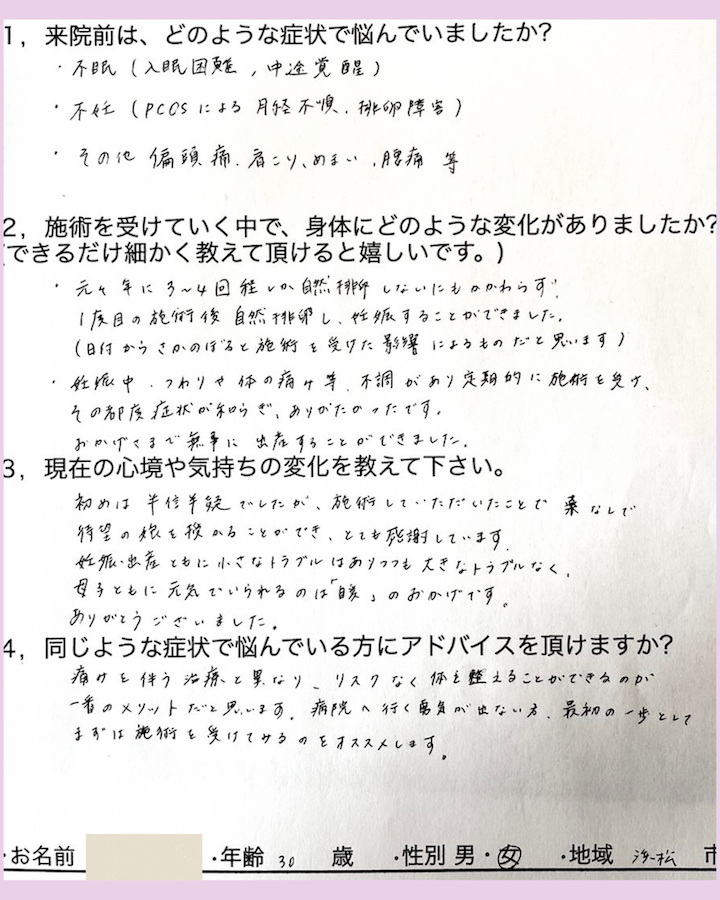 1，来院前は、どのような症状で悩んでいましたか?
・不眠（入眠困難，中途覚醒）
・不妊（PCOSによる月経不順、排卵障害）
・その他 偏頭痛、肩こり、めまい、腰痛 等
2，施術を受けていく中で、身体にどのような変化がありましたか?
(できるだけ細かく教えて頂けると嬉しいです。)
・元々年に3〜4回程しか自然排卵しないにもかかわらず、
1度目の施術後 自然排卵し、妊娠することができました。
(日付からさかのぼると施術を受けた影響によるものだと思います)
・妊娠中、つわりや体の痛み等、不調があり定期的に施術を受け、
その都度症状が和らぎ、ありがたかったです。
おかげさまで無事に出産することができました。
3，現在の心境や気持ちの変化を教えて下さい。
初めは半信半疑でしたが、施術していただいたことで 薬なしで
待望の娘を授かることができ、とても感謝しています。
妊娠・出産ともに小さなトラブルはありつつも大きなトラブルなく、
母子ともに元気でいられるのは「暖」のおかげです。
ありがとうございました。
4，同じような症状で悩んでいる方にアドバイスを頂けますか?
痛みを伴う治療と異なり、リスクなく体を整えることができるのが
一番のメリットだと思います。病院へ行く勇気が出ない方、最初の一歩として
まずは施術を受けてみるのをオススメします。
・お名前 ・年齢 30 歳 ・性別 男・女 ・地域 浜松 市